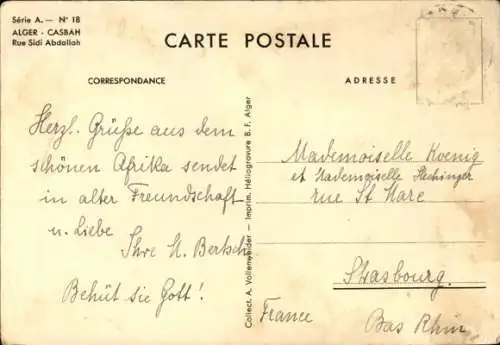 Série A. — N° 18
ALGER - CASBAH
Rue Sidi Abdallah
CARTE POSTALE
CORRESPONDANCE
ADRESSE
Herzl. Grüße aus dem
schönen Afrika sendet
in alter Freundschaft
u. Liebe
Ihre M. Bertsch
Behüt sie Gott!
Collect. A. Vollenweider — Imprim. Héliogravure B. F. Alger
Mademoiselle Koenig
et Mademoiselle Hechinger
rue St Marc
Strasbourg.
France
Bas Rhin